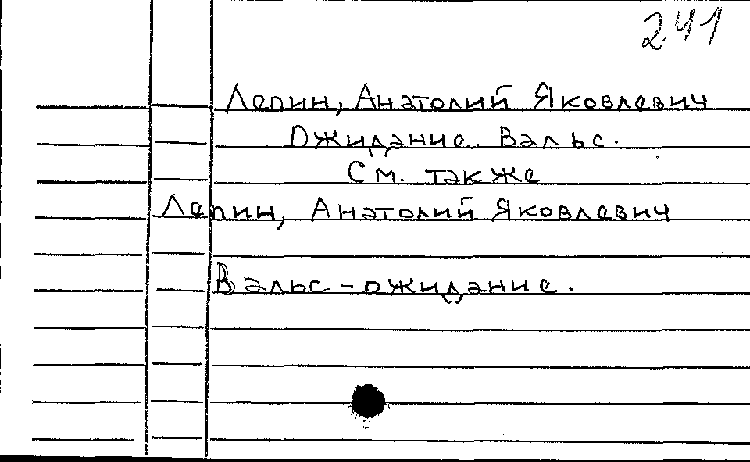 241
Лепин, Анатолий Яковлевич
Ожидание. Вальс.
См. также
Лепин, Анатолий Яковлевич
Вальс-ожидание.